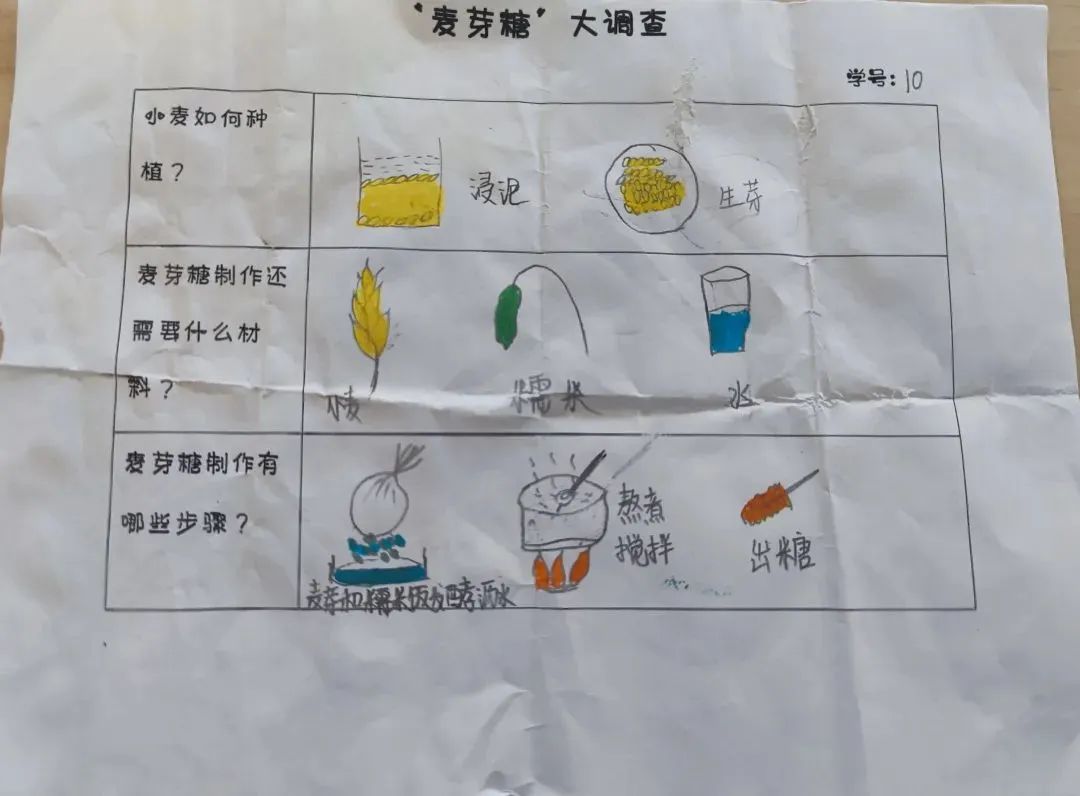 “麦芽糖”大调查
学号:10
小麦如何种
植？
浸泥
生芽
麦芽糖制作还
需要什么材
料？
小麦
糯米
水
麦芽糖制作有
哪些步骤？
麦芽和糯米饭发酵沥水
熬煮
搅拌
出糖